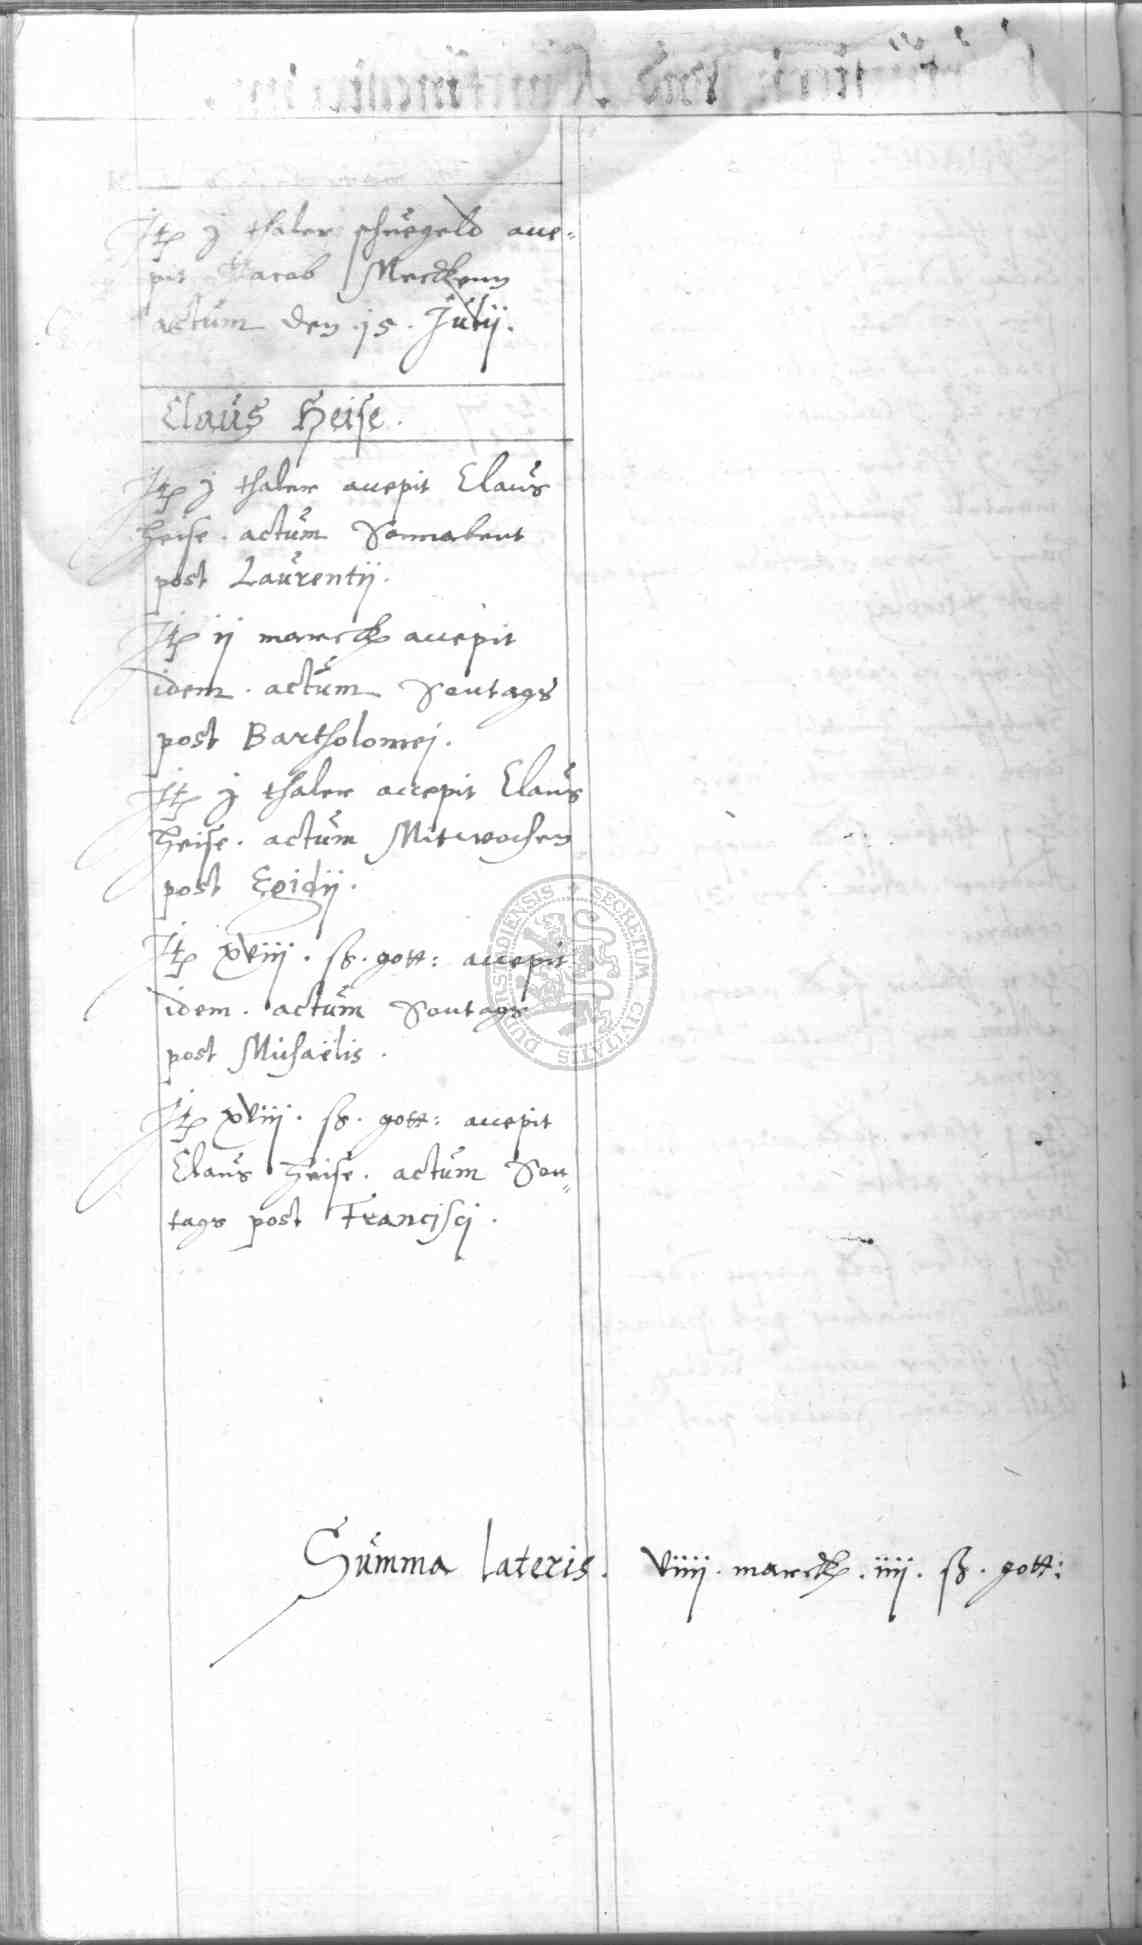 Jt̃ j thaler schuegeld acce-
pit Jacob Merckenn
actum den .15. Julij.
Claus Heise.
Jt̃ j thaler accepit Claus
Heise. actum Sonnabent
post Laurentij.
Jt̃ ij marck accepit
idem. actum Sontags
post Bartholomej.
Jt̃ j thaler accepit Claus
Heise. actum Mitwochen
post Egidij.
Jt̃ xviij. ß. gott: accepit
idem. actum Sontags
post Michaëlis.
Jt̃ xviij. ß. gott: accepit
Claus Heise. actum Son-
tags post Francisci.
Summa lateris. viiij. marck. iiij. ß. gott:
SECRETUM CIVITATIS DUDERSTADIENSIS